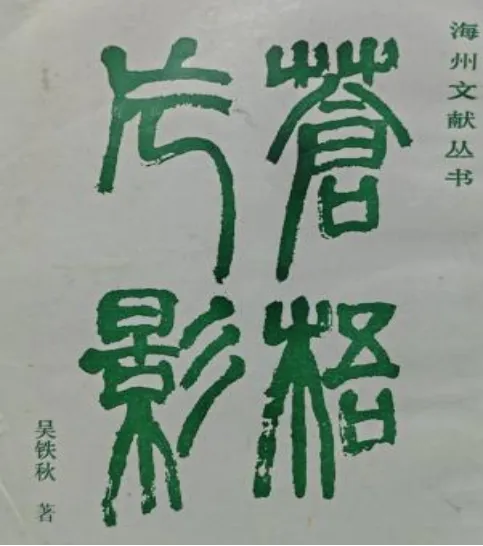 海州文献丛书
蒼梧
片影
吴铁秋 著